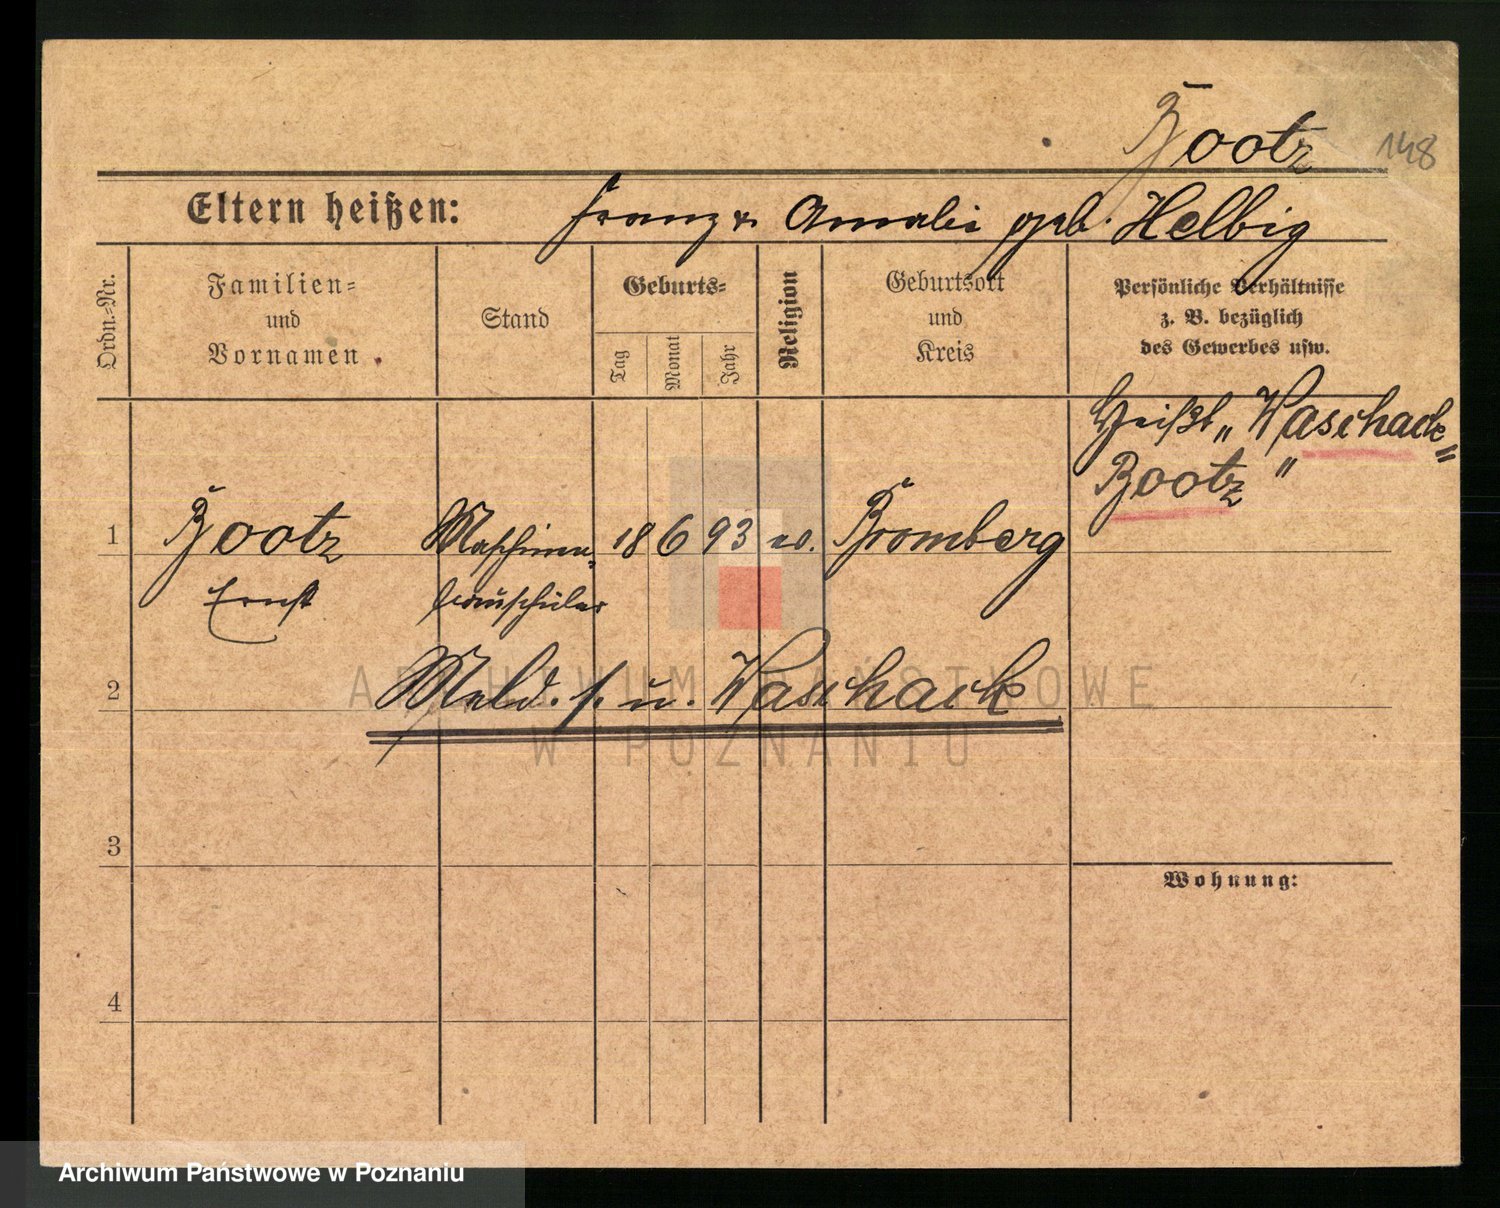 Bootz
148
Eltern heißen: Franz u. Amalie geb. Helbig
Ordn.=Nr.
Familien=
und
Vornamen
Stand
Geburts=
Tag
Monat
Jahr
Religion
Geburtsort
und
Kreis
Persönliche Verhältnisse
z. B. bezüglich
des Gewerbes usw.
Heißt „Waschack=
Bootz“
1 Bootz Maschinen= 18 6 93 ev. Bromberg
Ernst bauschüler
2 Meld. s. u. Waschack
3
Wohnung:
4
ARCHIWUM PAŃSTWOWE
W POZNANIU
Archiwum Państwowe w Poznaniu